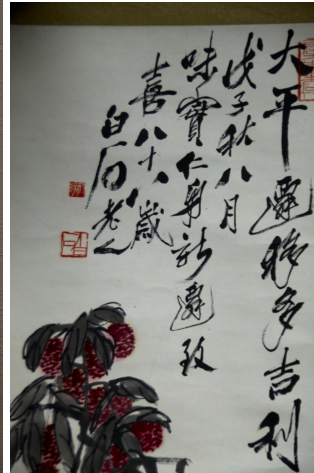 大平遷移多吉利
戊子秋八月
味寶仁弟新遷致
喜八十八歲
白石老人